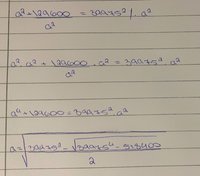 a²+129600 = 39475² /· a²
a²
a²·a² + 129600 · a² = 39475²·a²
a²
a⁴+129600 = 39475²·a²
a = √39475² - √39475⁴ - 518400
2